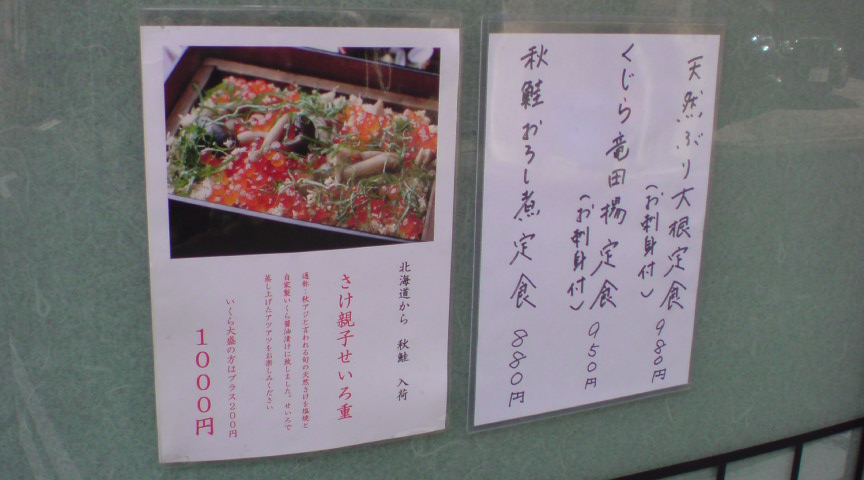 北海道から 秋鮭 入荷
さけ親子せいろ重
通称:秋アジと言われる旬の天然さけを塩焼と
自家製いくら醤油漬けに致しました。せいろで
蒸し上げたアツアツをお楽しみください
いくら大盛の方はプラス200円
1000円
天然ぶり大根定食 980円
(お刺身付)
くじら竜田揚定食 950円
(お刺身付)
秋鮭おろし煮定食 880円